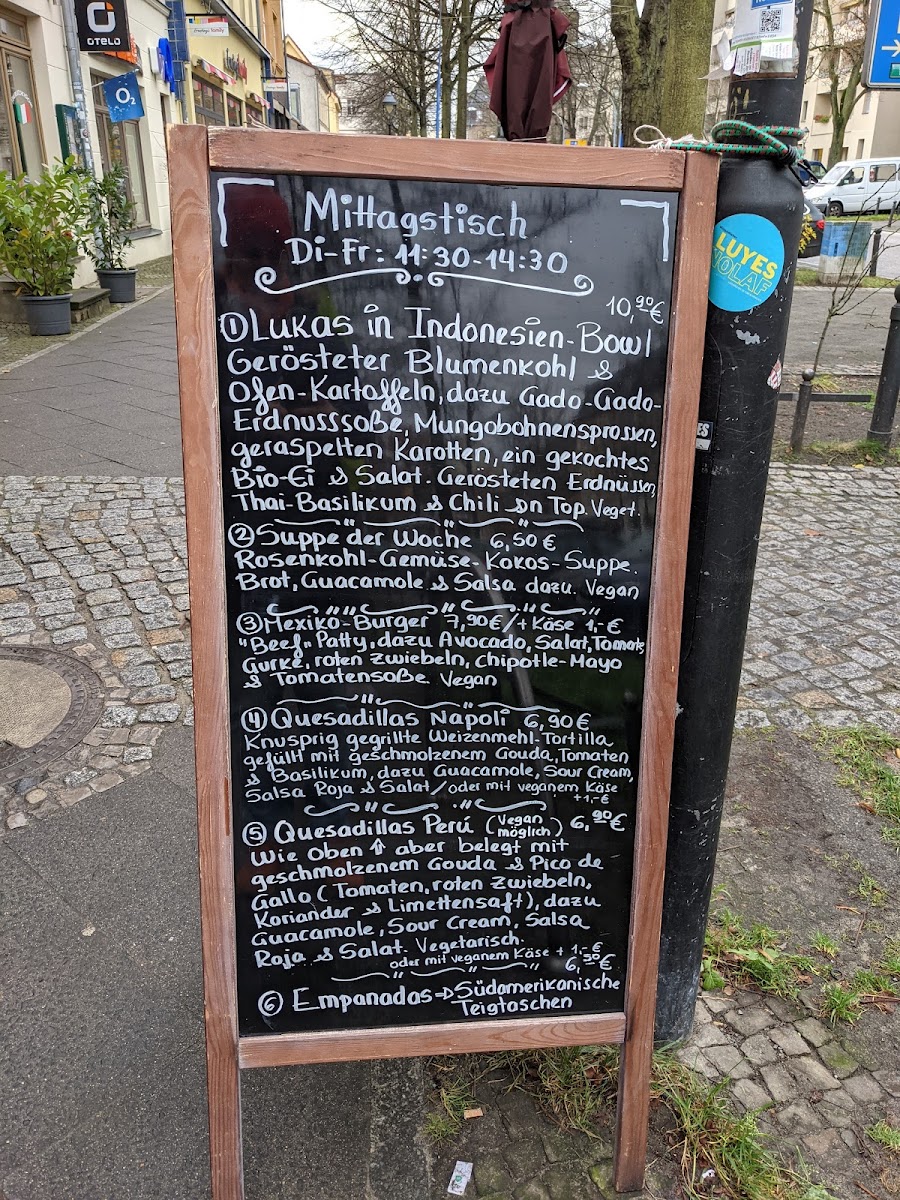 OTELO
O₂
LUYES
NOLAF
Mittagstisch
Di-Fr: 11:30-14:30
10,90€
① Lukas in Indonesien-Bowl
Gerösteter Blumenkohl &
Ofen-Kartoffeln, dazu Gado-Gado-
Erdnusssoße, Mungobohnensprossen,
geraspelten Karotten, ein gekochtes
Bio-Ei & Salat. Gerösteten Erdnüssen,
Thai-Basilikum & Chili on Top. Veget.
② Suppe der Woche 6,50 €
Rosenkohl-Gemüse-Kokos-Suppe.
Brot, Guacamole & Salsa dazu. Vegan
③ Mexiko-Burger 7,90€/+Käse 1,-€
"Beef" Patty, dazu Avocado, Salat, Tomate,
Gurke, roten Zwiebeln, Chipotle-Mayo
& Tomatensoße Vegan
④ Quesadillas Napoli 6,90€
Knusprig gegrillte Weizenmehl-Tortilla
gefüllt mit geschmolzenem Gouda, Tomaten
& Basilikum, dazu Guacamole, Sour Cream,
Salsa Roja & Salat/oder mit veganem Käse
+1,-€
⑤ Quesadillas Perú (Vegan möglich) 6,90€
Wie oben ⇧ aber belegt mit
geschmolzenem Gouda & Pico de
Gallo (Tomaten, roten Zwiebeln,
Koriander & Limettensaft), dazu
Guacamole, Sour Cream, Salsa
Roja & Salat. Vegetarisch.
oder mit veganem Käse + 1,-€
6,50€
⑥ Empanadas → Südamerikanische
Teigtaschen